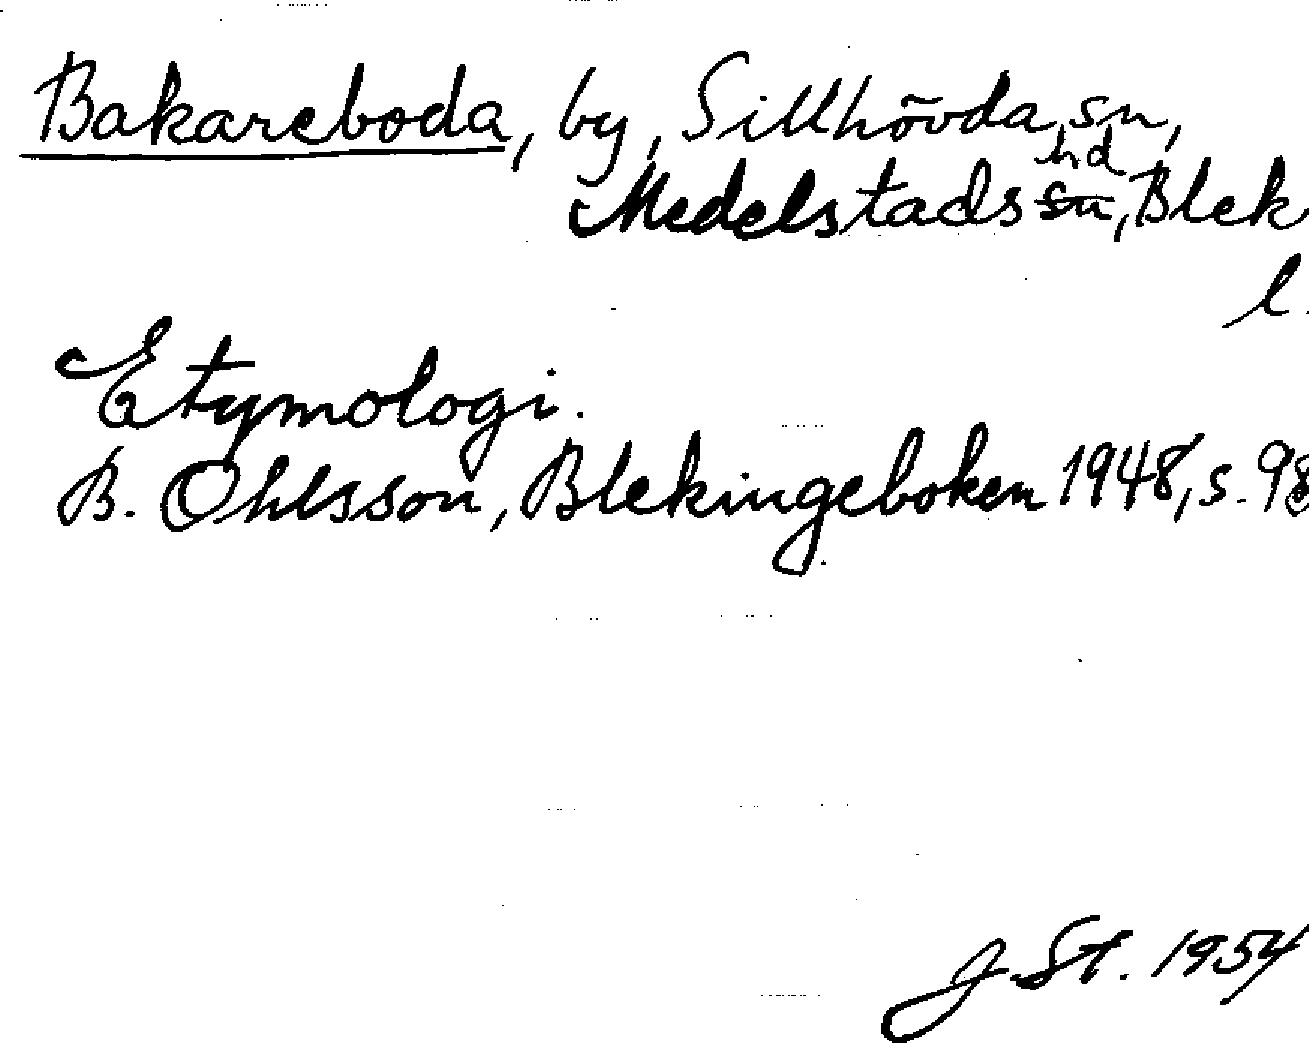 Bakareboda, by, Sillhövda sn,
Medelstads hd, Blek.
l.
Etymologi.
B. Ohlsson, Blekingeboken 1948, s. 98
J. St. 1954